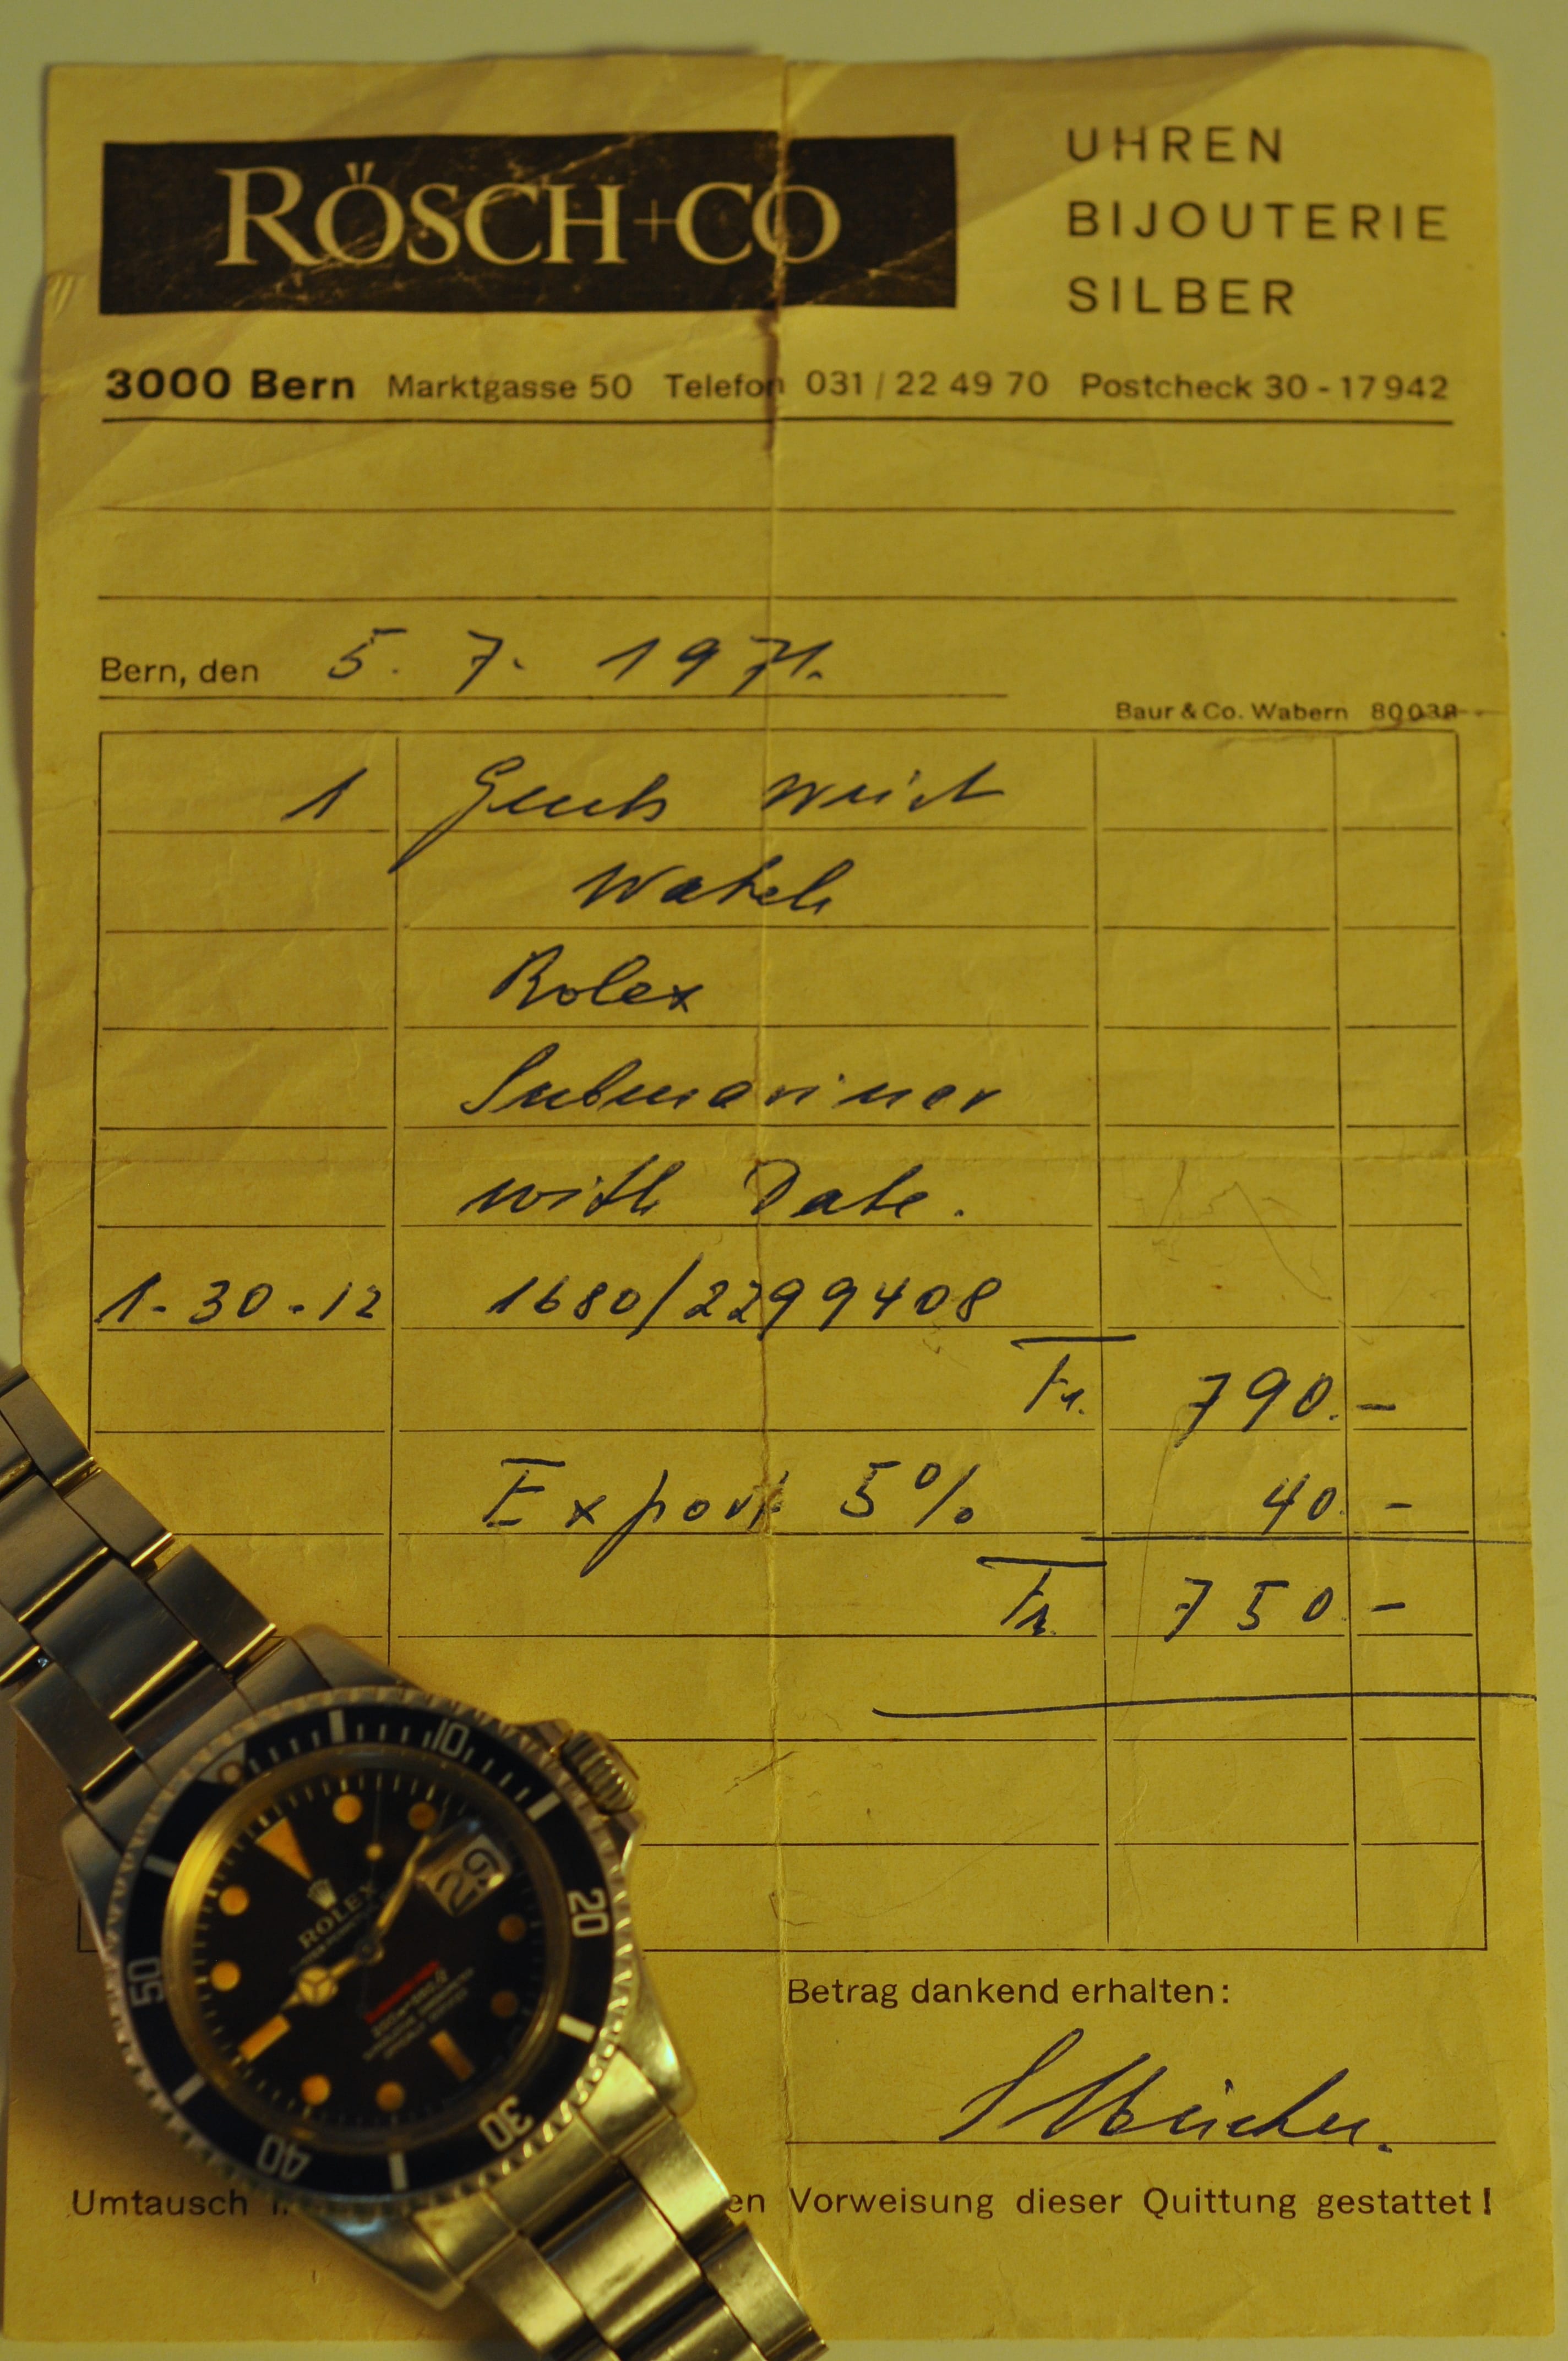 RÖSCH+CO
UHREN
BIJOUTERIE
SILBER
3000 Bern Marktgasse 50 Telefon 031 / 22 49 70 Postcheck 30 - 17942
Bern, den 5. 7. 1971.
Baur & Co. Wabern 80038
1 Gents wrist
Watch
Rolex
Submariner
with Date.
1-30-12 1680/2299408
Fr. 790.-
Export 5% 40.-
Fr. 750.-
Betrag dankend erhalten:
Umtausch
en Vorweisung dieser Quittung gestattet!
10
20
30
40
50
29
ROLEX